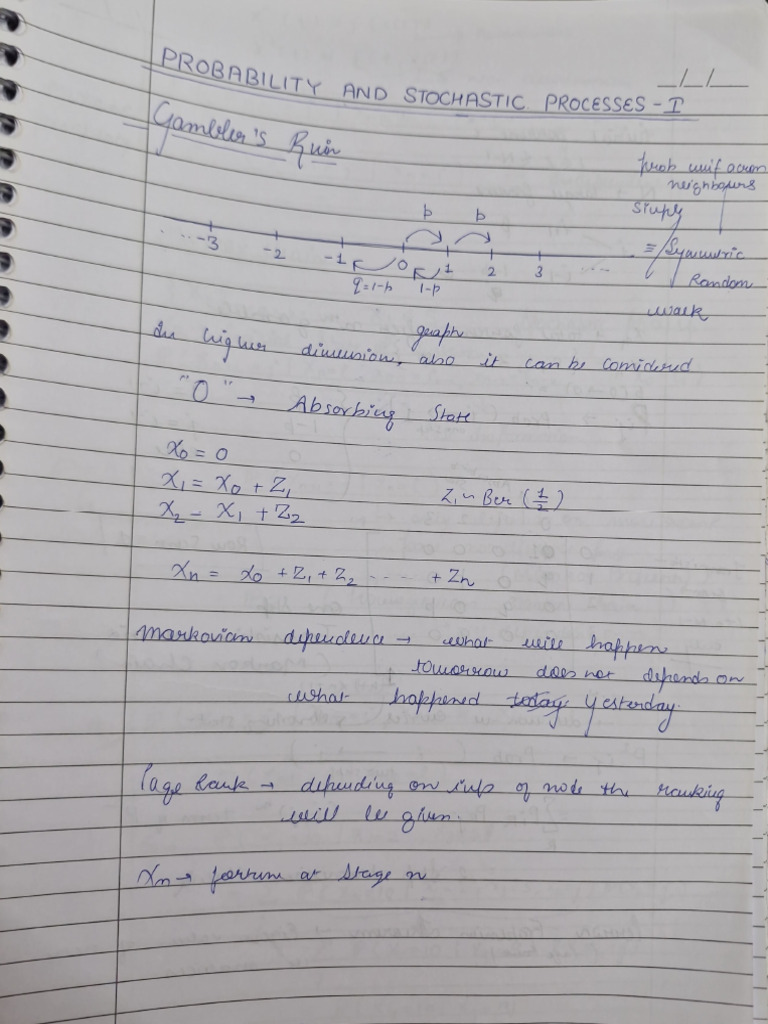 __/__/__
PROBABILITY AND STOCHASTIC PROCESSES - I
Gambler's Ruin
prob unif across
neighbours
Simple
p p
.. ...-3 -2 -1 0 1 2 3 ....
≡ Symmetric
q=1-p 1-p
Random
walk
graph
In higher dimension, also it can be considered
"0" → Absorbing State
X₀ = 0
X₁ = X₀ + Z₁ Z₁ ~ Ber (1/2)
X₂ = X₁ + Z₂
Xn = X₀ + Z₁ + Z₂ ..... + Zn
Markovian dependence → what will happen
tomorrow does not depends on
what happened today yesterday.
Page Rank → depending on info of node the ranking
will be given.
Xn → fortune at stage n